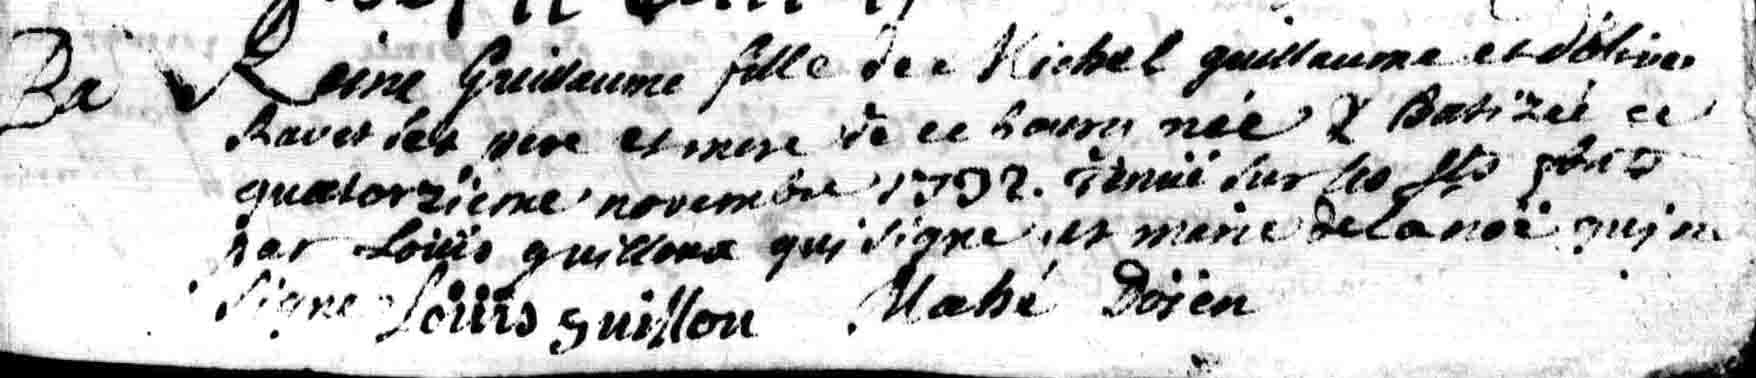 Ba Reine Guillaume fille de Michel guillaume et d'olive
Ravet ses pere et mere de ce bourg née & Batizéé ce
quatorzieme novembre 1732. Tenüe sur les sts fonts
par Loüis guilloux qui signe et marie delanoë qui ne
signe Loüis guillou Mahé Doïen